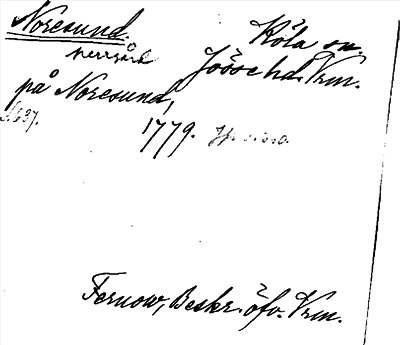 Noresund.
Köla sn.
herrgård
Jösse hd. Vrm.
på Noresund,
s. 637.
1779.
Fernow, Beskr. öfv. Vrm.